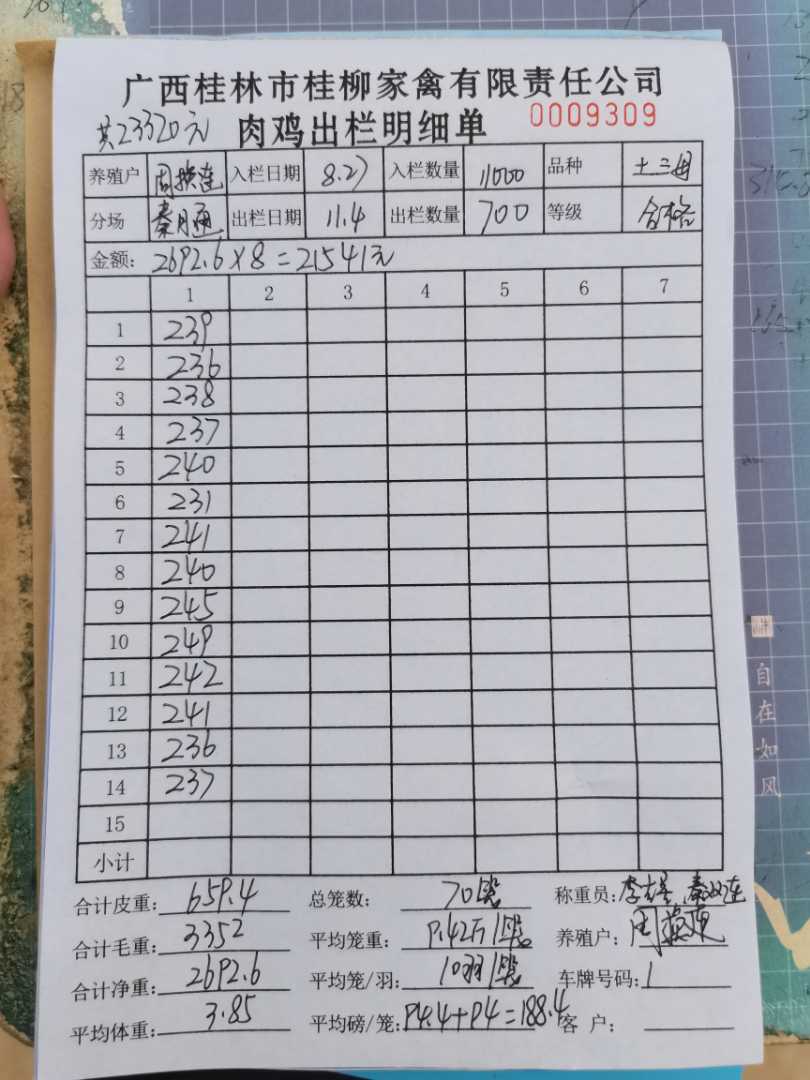 广西桂林市桂柳家禽有限责任公司
共23320元 肉鸡出栏明细单 0009309
养殖户 周 连 入栏日期 8.27 入栏数量 11000 品种 土三母
分场 秦 入栏日期 11.4 出栏数量 700 等级 合格
金额: 2692.6×8=21541元
1 2 3 4 5 6 7
1 239
2 236
3 238
4 237
5 240
6 231
7 241
8 240
9 245
10 249
11 242
12 241
13 236
14 237
15
小计
合计皮重: 659.4 总笼数: 70笼 称重员:李 秦 连
合计毛重: 3352 平均笼重: 9.42斤/笼 养殖户: 周
合计净重: 2692.6 平均笼/羽: 10羽/笼 车牌号码: /
平均体重: 3.85 平均磅/笼: 94.4+94=188.4 客 户:
自在如风